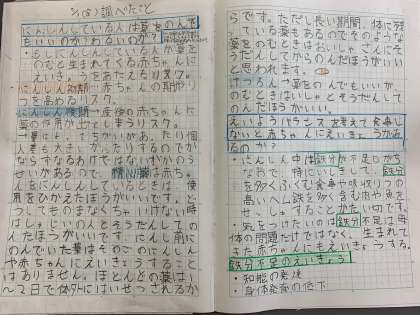 調べたこと
にんしんしている人は薬をのんで
もいいのか
・もしにんしんしている人が薬
をのむと生まれてくる赤ちゃんに
えいきょうをあたえるリスク。
・にんしん初期→赤ちゃんの
を高めるリスク。
・にんしん後期→産後の赤ちゃんに
薬の作用が出てしまうリスク。
個
人差も大きいかったりするので
ならずなるわけではないがかのう
せいがあるので、
んをにんしんしているときは、使
用をひかえたほうがいいです。ど
うしてものまなくちゃいけない時
はしゅじいの人とそうだんしての
んだほうがいいです。にんし前に
のんでいた薬はそのごのにんしん
や赤ちゃんにえいきょうすること
はありません。ほとんどの薬は1
〜2日で体外にはいせつされるか
らです。ただし長い期間、体に残
っている薬もあるのでそのような
薬をのむときはおいしゃさんにそ
うだんしてからのんだほうがいい
と思われます。
けつろん→薬をのんでもいいが
のむときはいしゃとそうだんして
のんだほうがいい。
えいようバランスを考えて食事し
ないと赤ちゃんにえいきょうがある
のか?
・にんしん中は鉄分が不足しがち
なので、特にいしきして、鉄分
を多くふくむ食事や吸収りつの
高いヘム鉄を多く含む肉や魚を
せっしゅすることがたいせつです。
・気をつけたいのは鉄分不足は母
体の問題だけではなく、生まれて
きた赤ちゃんにもえいきょうする。
鉄分不足のえいきょう
・知能の発達
・身体発育の低下